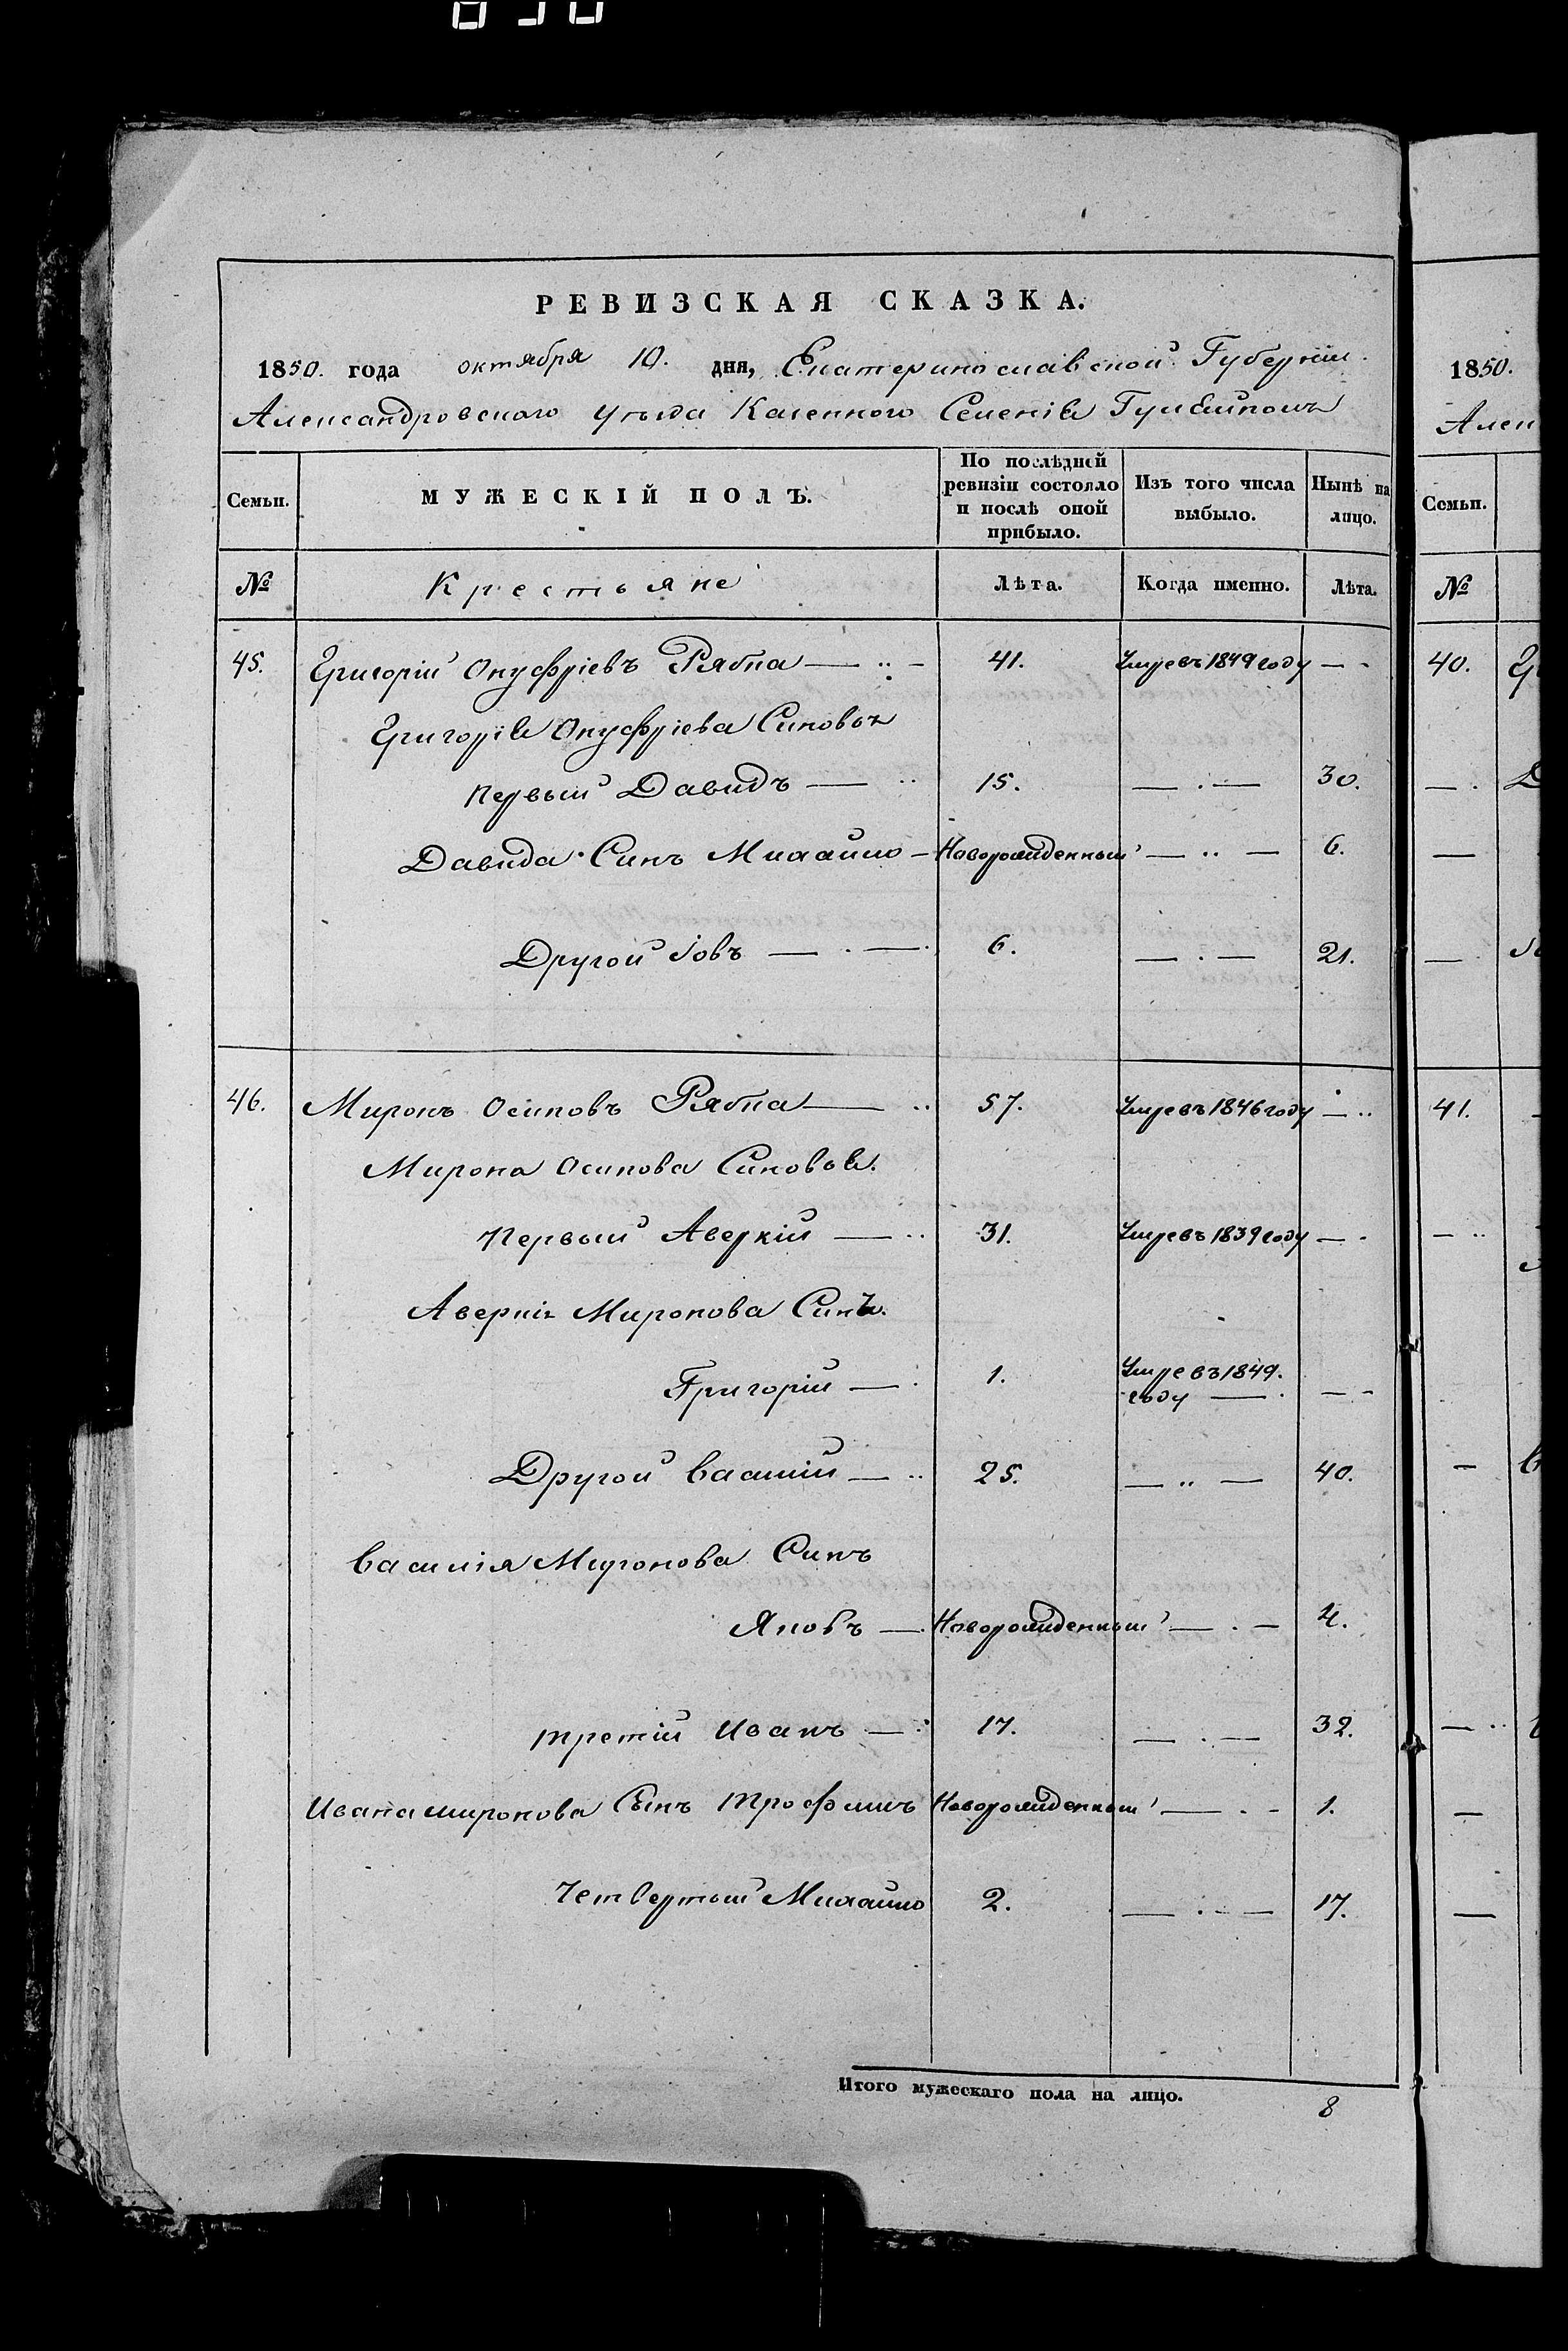 РЕВИЗСКАЯ СКАЗКА.
1850. года октября 10. дня, Екатеринославской Губерніи.
Александровского Уезда Казенного Селенія
Семьи.
МУЖЕСКІЙ ПОЛЪ.
По послѣдней ревизіи состояло и послѣ оной прибыло.
Изъ того числа выбыло.
Нынѣ на лицо.
№
Крестьяне
Лѣта.
Когда именно.
Лѣта.
45. Григорій Онуфріевъ Рябка — 41. Умре въ 1849 году —
Григорія Онуфріева Синовья
первый Давидъ — 15. — 30.
Давида Синъ Михайло — Новорожденный — 6.
Другой Іовъ — 6. — 21.
46. Миронъ Осиповъ Рябка — 57. Умре въ 1846 году —
Мирона Осипова Синовья.
первый Аверкій — 31. Умре въ 1839 году —
Аверкія Миронова Синъ.
Григорій — 1. Умре въ 1849.
году — —
Другой Василій — 25. — 40.
Василія Миронова Синъ
Яковъ — Новорожденный — 4.
третій Иванъ — 17. — 32.
Ивана миронова Сынъ трофимъ Новорожденный — 1.
Четвертый Михайло 2. — 17.
Итого мужескаго пола на лицо. 8
1850.
Алек
Семьи.
№
40. Гр
41.